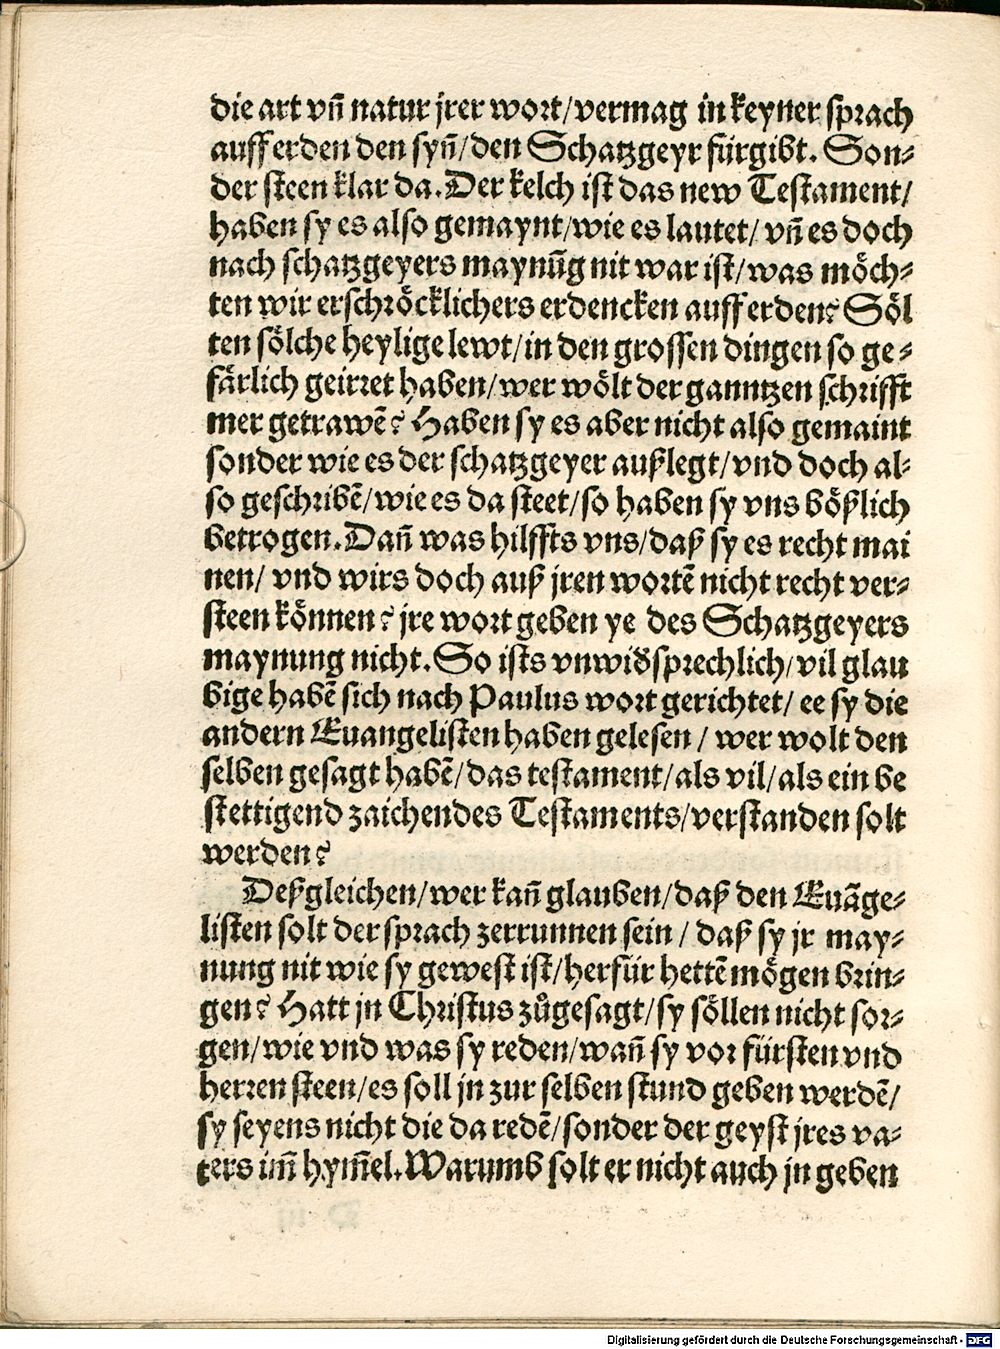 die art vñ natur jrer wort/vermag in keyner sprach
auff erden den syñ/den Schatzgeyr fürgibt. Son⸗
der steen klar da. Der kelch ist das new Testament/
haben sy es also gemaynt/wie es lautet/ vñ es doch
nach schatzgeyers maynũg nit war ist/was möch⸗
ten wir erschröcklichers erdencken auff erden? Söl
ten sölche heylige lewt/in den grossen dingen so ge⸗
färlich geirret haben/wer wölt der ganntzen schrifft
mer getrawẽ? Haben sy es aber nicht also gemaint
sonder wie es der schatzgeyer außlegt/vnd doch al⸗
so geschribẽ/wie es da steet/so haben sy vns bößlich
betrogen. Dañ was hilffts vns/daß sy es recht mai
nen/ vnd wirs doch auß jren wortẽ nicht recht ver⸗
steen können? jre wort geben ye des Schatzgeyers
maynung nicht. So ists vnwidsprechlich/vil glau
bige habẽ sich nach Paulus wort gerichtet/ ee sy die
andern Euangelisten haben gelesen / wer wolt den
selben gesagt habẽ/das testament/als vil/als ein be
stettigend zaichendes Testaments/verstanden solt
werden?
Deßgleichen/wer kañ glauben/daß den Euãge⸗
listen solt der sprach zerrunnen sein / daß sy jr may⸗
nung nit wie sy gewest ist/herfür hettẽ mögen brin⸗
gen? Hatt jn Christus zůgesagt/sy söllen nicht sor⸗
gen/wie vnd was sy reden/wañ sy vor fürsten vnd
herren steen/es soll jn zur selben stund geben werdẽ/
sy seyens nicht die da redẽ/sonder der geyst jres va⸗
ters im̃ hym̃el. Warumb solt er nicht auch jn geben
Digitalisierung gefördert durch die Deutsche Forschungsgemeinschaft - DFG